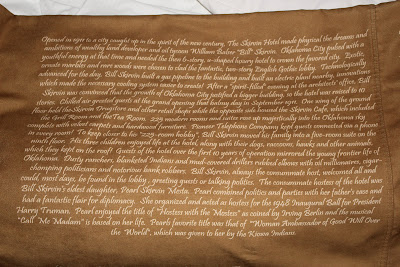 Opened in 1911 to a city caught up in the spirit of the new century, The Skirvin Hotel made physical the dreams and
ambitions of wealthy land developer and oil tycoon William Balser "Bill" Skirvin. Oklahoma City pulsed with a
youthful energy at that time and needed the then 6-story, u-shaped luxury hotel to crown the favored city. Exotic
marbles and rare woods were chosen to clad the fantastic, two-story English Gothic lobby. Technologically
advanced for the day, Bill Skirvin built a gas pipeline to the building and built an electric plant nearby, innovations
which made the necessary cooling system easier to create! After a "spirit-filled" evening at the architects' office, Bill
Skirvin was convinced that the growth of Oklahoma City justified a bigger building, so the hotel was raised to 10
stories. Chilled air greeted guests at the grand opening that balmy day in September 1911. One wing of the ground
floor held the Skirvin Drugstore and other retail shops while the opposite side housed the Skirvin Café, which included
the Grill Room and the Tea Room. 225 modern rooms and suites rose up majestically into the Oklahoma sky
complete with velvet carpets and hardwood furniture. Pioneer Telephone Company kept guests connected via a phone
in every room! To keep closer to his "225-room hobby", Bill Skirvin moved his family into a five-room suite on the
ninth floor. His three children enjoyed life at the hotel, along with their dogs, raccoons, hawks and other animals,
which they kept on the roof! Guests of the hotel over the first 10 years of operation mirrored the young frontier life of
Oklahoma. Dusty ranchers, blanketed Indians and mud-covered drillers rubbed elbows with oil millionaires, cigar-
chomping politicians and notorious bank robbers. Bill Skirvin, always the consummate host, welcomed all and
could, most days, be found in the lobby; greeting guests or talking politics. The consummate hostess of the hotel was
Bill Skirvin's eldest daughter, Pearl Skirvin Mesta. Pearl combined politics and parties with her father's care and
had a fantastic flair for diplomacy. She organized and acted as hostess for the 1948 Inaugural Ball for President
Harry Truman. Pearl enjoyed the title of "Hostess with the Mostess" as coined by Irving Berlin and the musical
"Call Me Madam" is based on her life. Pearl's favorite title was that of "Woman Ambassador of Good Will Over
the World", which was given to her by the Kiowa Indians.